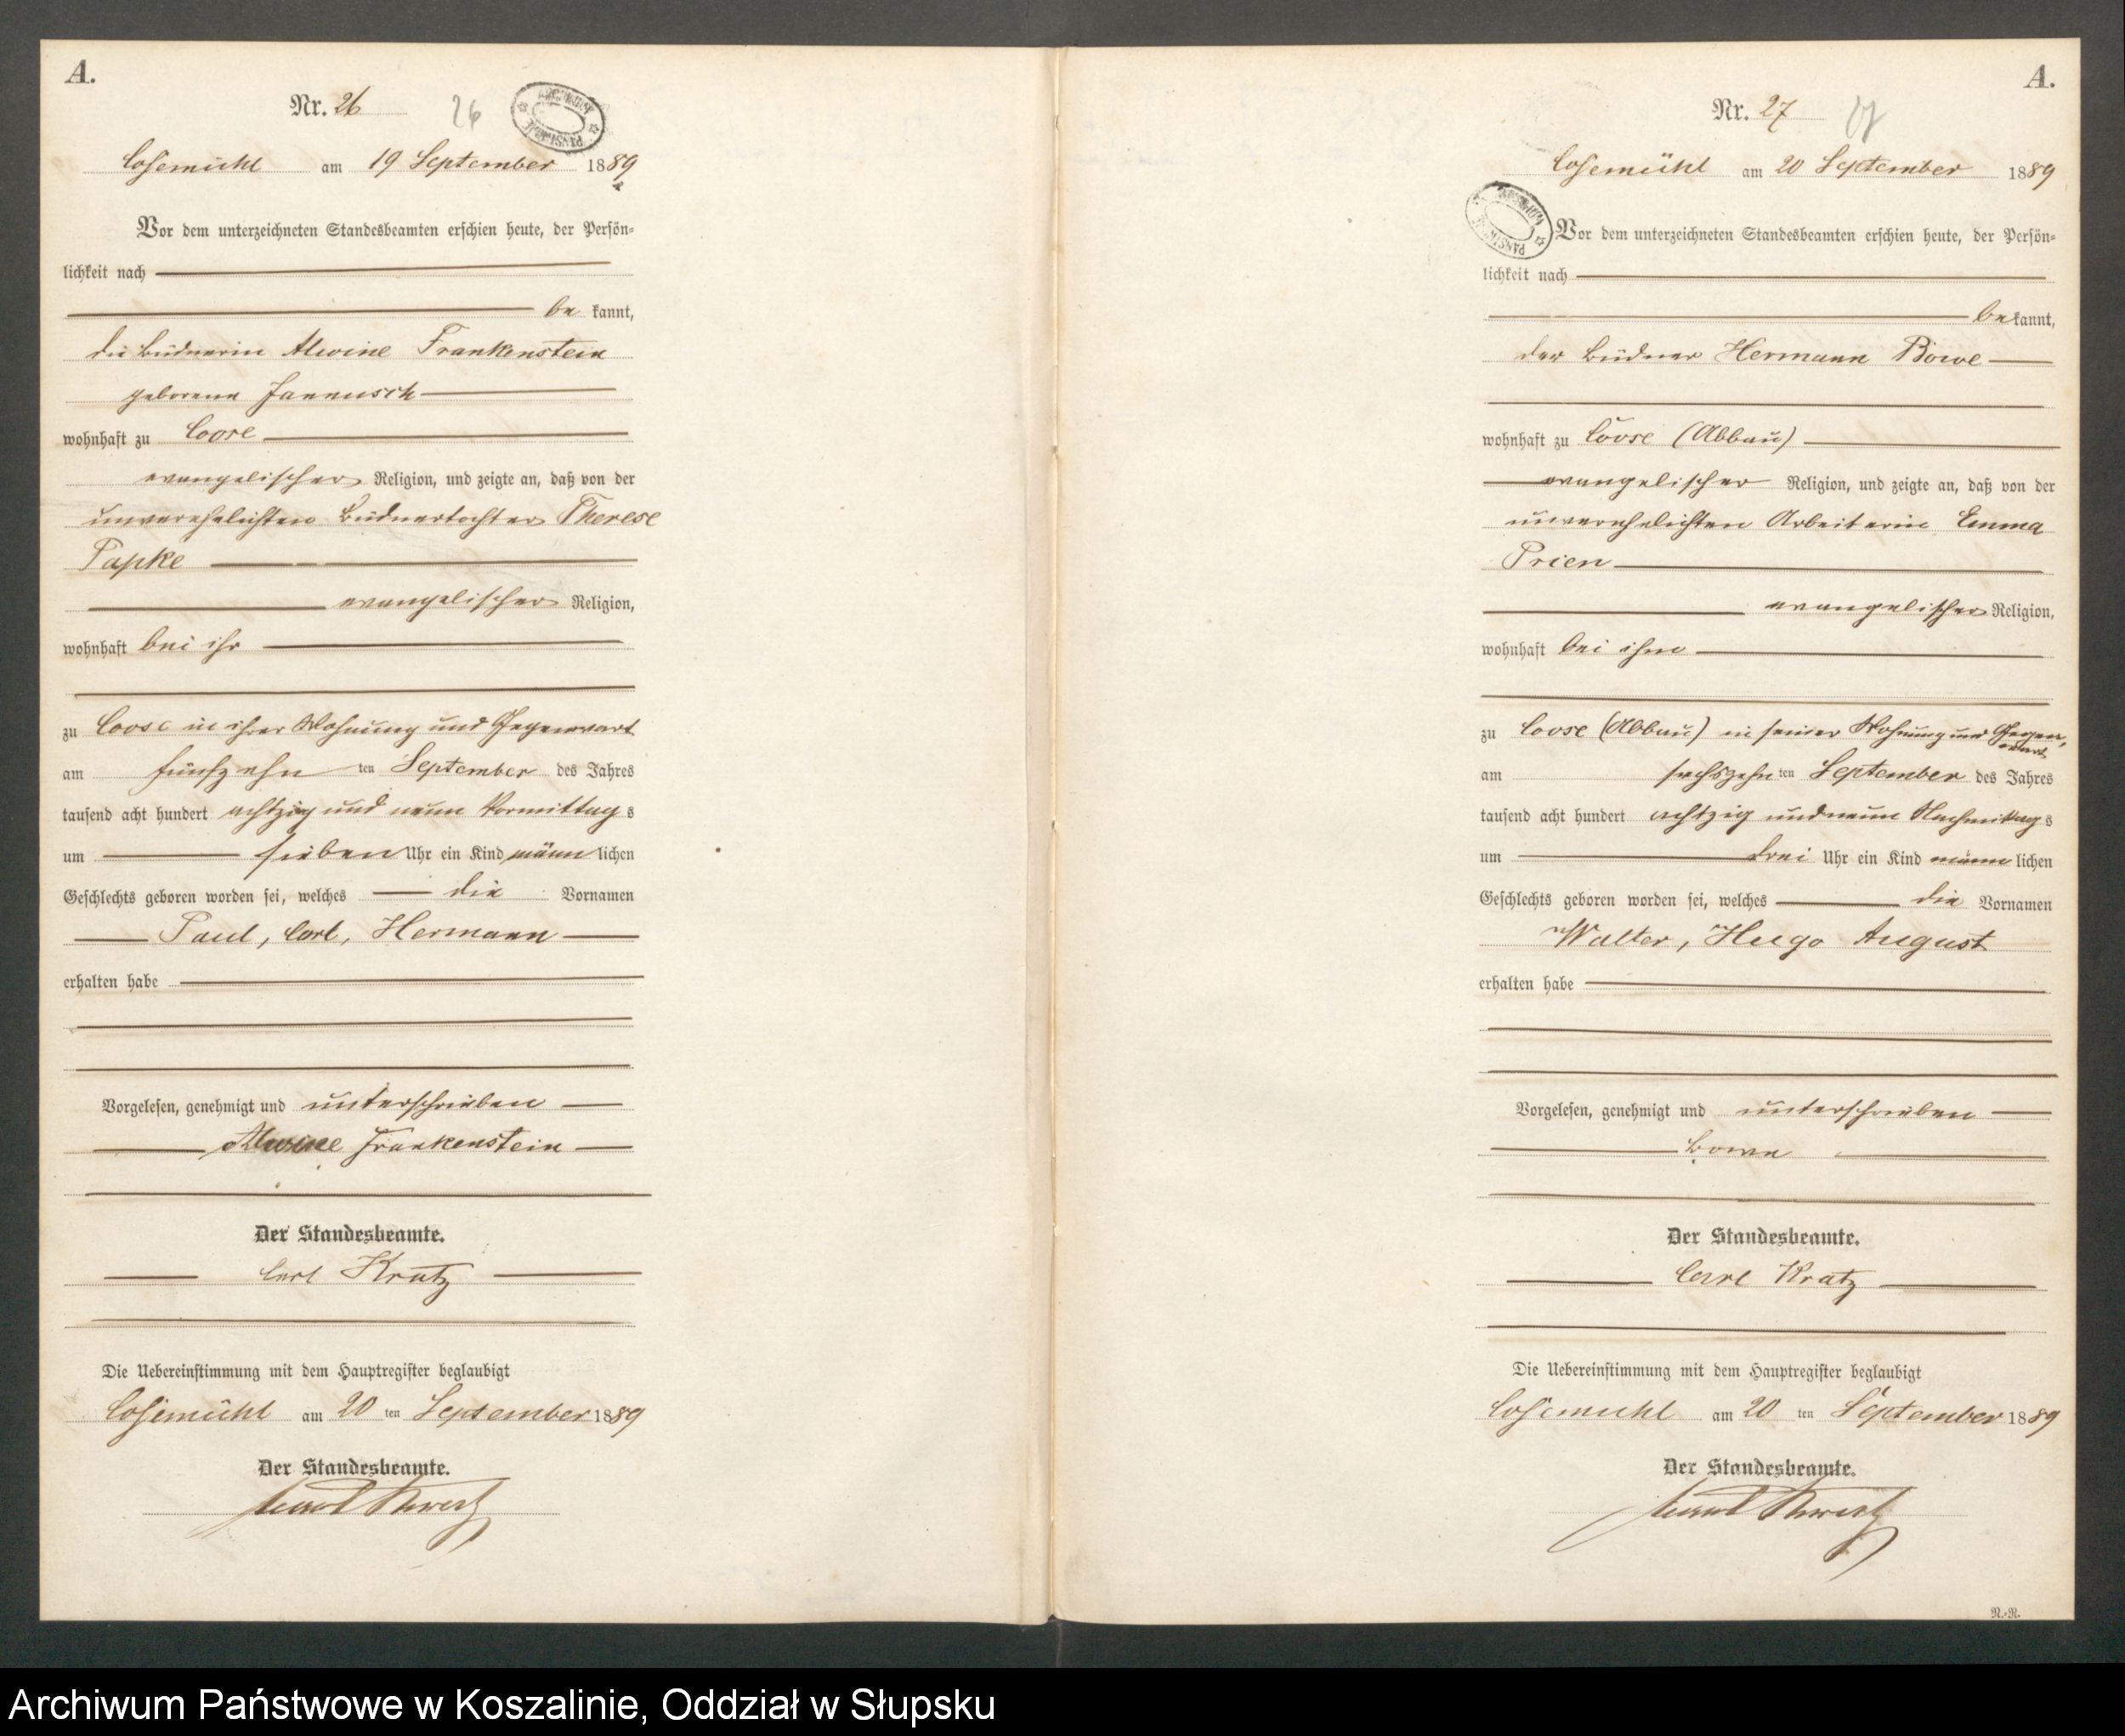 A.
Nr. 26
26
Cosemühl am 19 September 1889
Vor dem unterzeichneten Standesbeamten erschien heute, der Persön=
lichkeit nach
be kannt,
die Büdnerin Alwine Frankenstein
geborene Jannusch
wohnhaft zu Coose
evangelischer Religion, und zeigte an, daß von der
unverehelichten Büdnertochter Therese
Papke
evangelischer Religion,
wohnhaft bei ihr
zu Coose in ihrer Wohnung und Gegenwart
am fünfzehn ten September des Jahres
tausend acht hundert achtzig und neun Vormittag s
um sieben Uhr ein Kind männ lichen
Geschlechts geboren worden sei, welches die Vornamen
Paul, Carl, Hermann
erhalten habe
Vorgelesen, genehmigt und unterschrieben
Alwine Frankenstein
Der Standesbeamte.
Carl Kratz
Die Uebereinstimmung mit dem Hauptregister beglaubigt
Cosemühl am 20 ten September 1889
Der Standesbeamte.
A.
Nr. 27
27
Cosemühl am 20 September 1889
Vor dem unterzeichneten Standesbeamten erschien heute, der Persön=
lichkeit nach
be kannt,
der Büdner Hermann Bowe
wohnhaft zu Coose (Abbau)
evangelischer Religion, und zeigte an, daß von der
unverehelichten Arbeiterin Emma
Prien
evangelischer Religion,
wohnhaft bei ihm
zu Coose (Abbau) in seiner Wohnung und Gegen,
wart
am sechszehn ten September des Jahres
tausend acht hundert achtzig und neun Nachmittag s
um drei Uhr ein Kind männ lichen
Geschlechts geboren worden sei, welches die Vornamen
Walter, Hugo August
erhalten habe
Vorgelesen, genehmigt und unterschrieben
Bowe
Der Standesbeamte.
Carl Kratz
Die Uebereinstimmung mit dem Hauptregister beglaubigt
Cosemühl am 20 ten September 1889
Der Standesbeamte.
N.=N.
Archiwum Państwowe w Koszalinie, Oddział w Słupsku